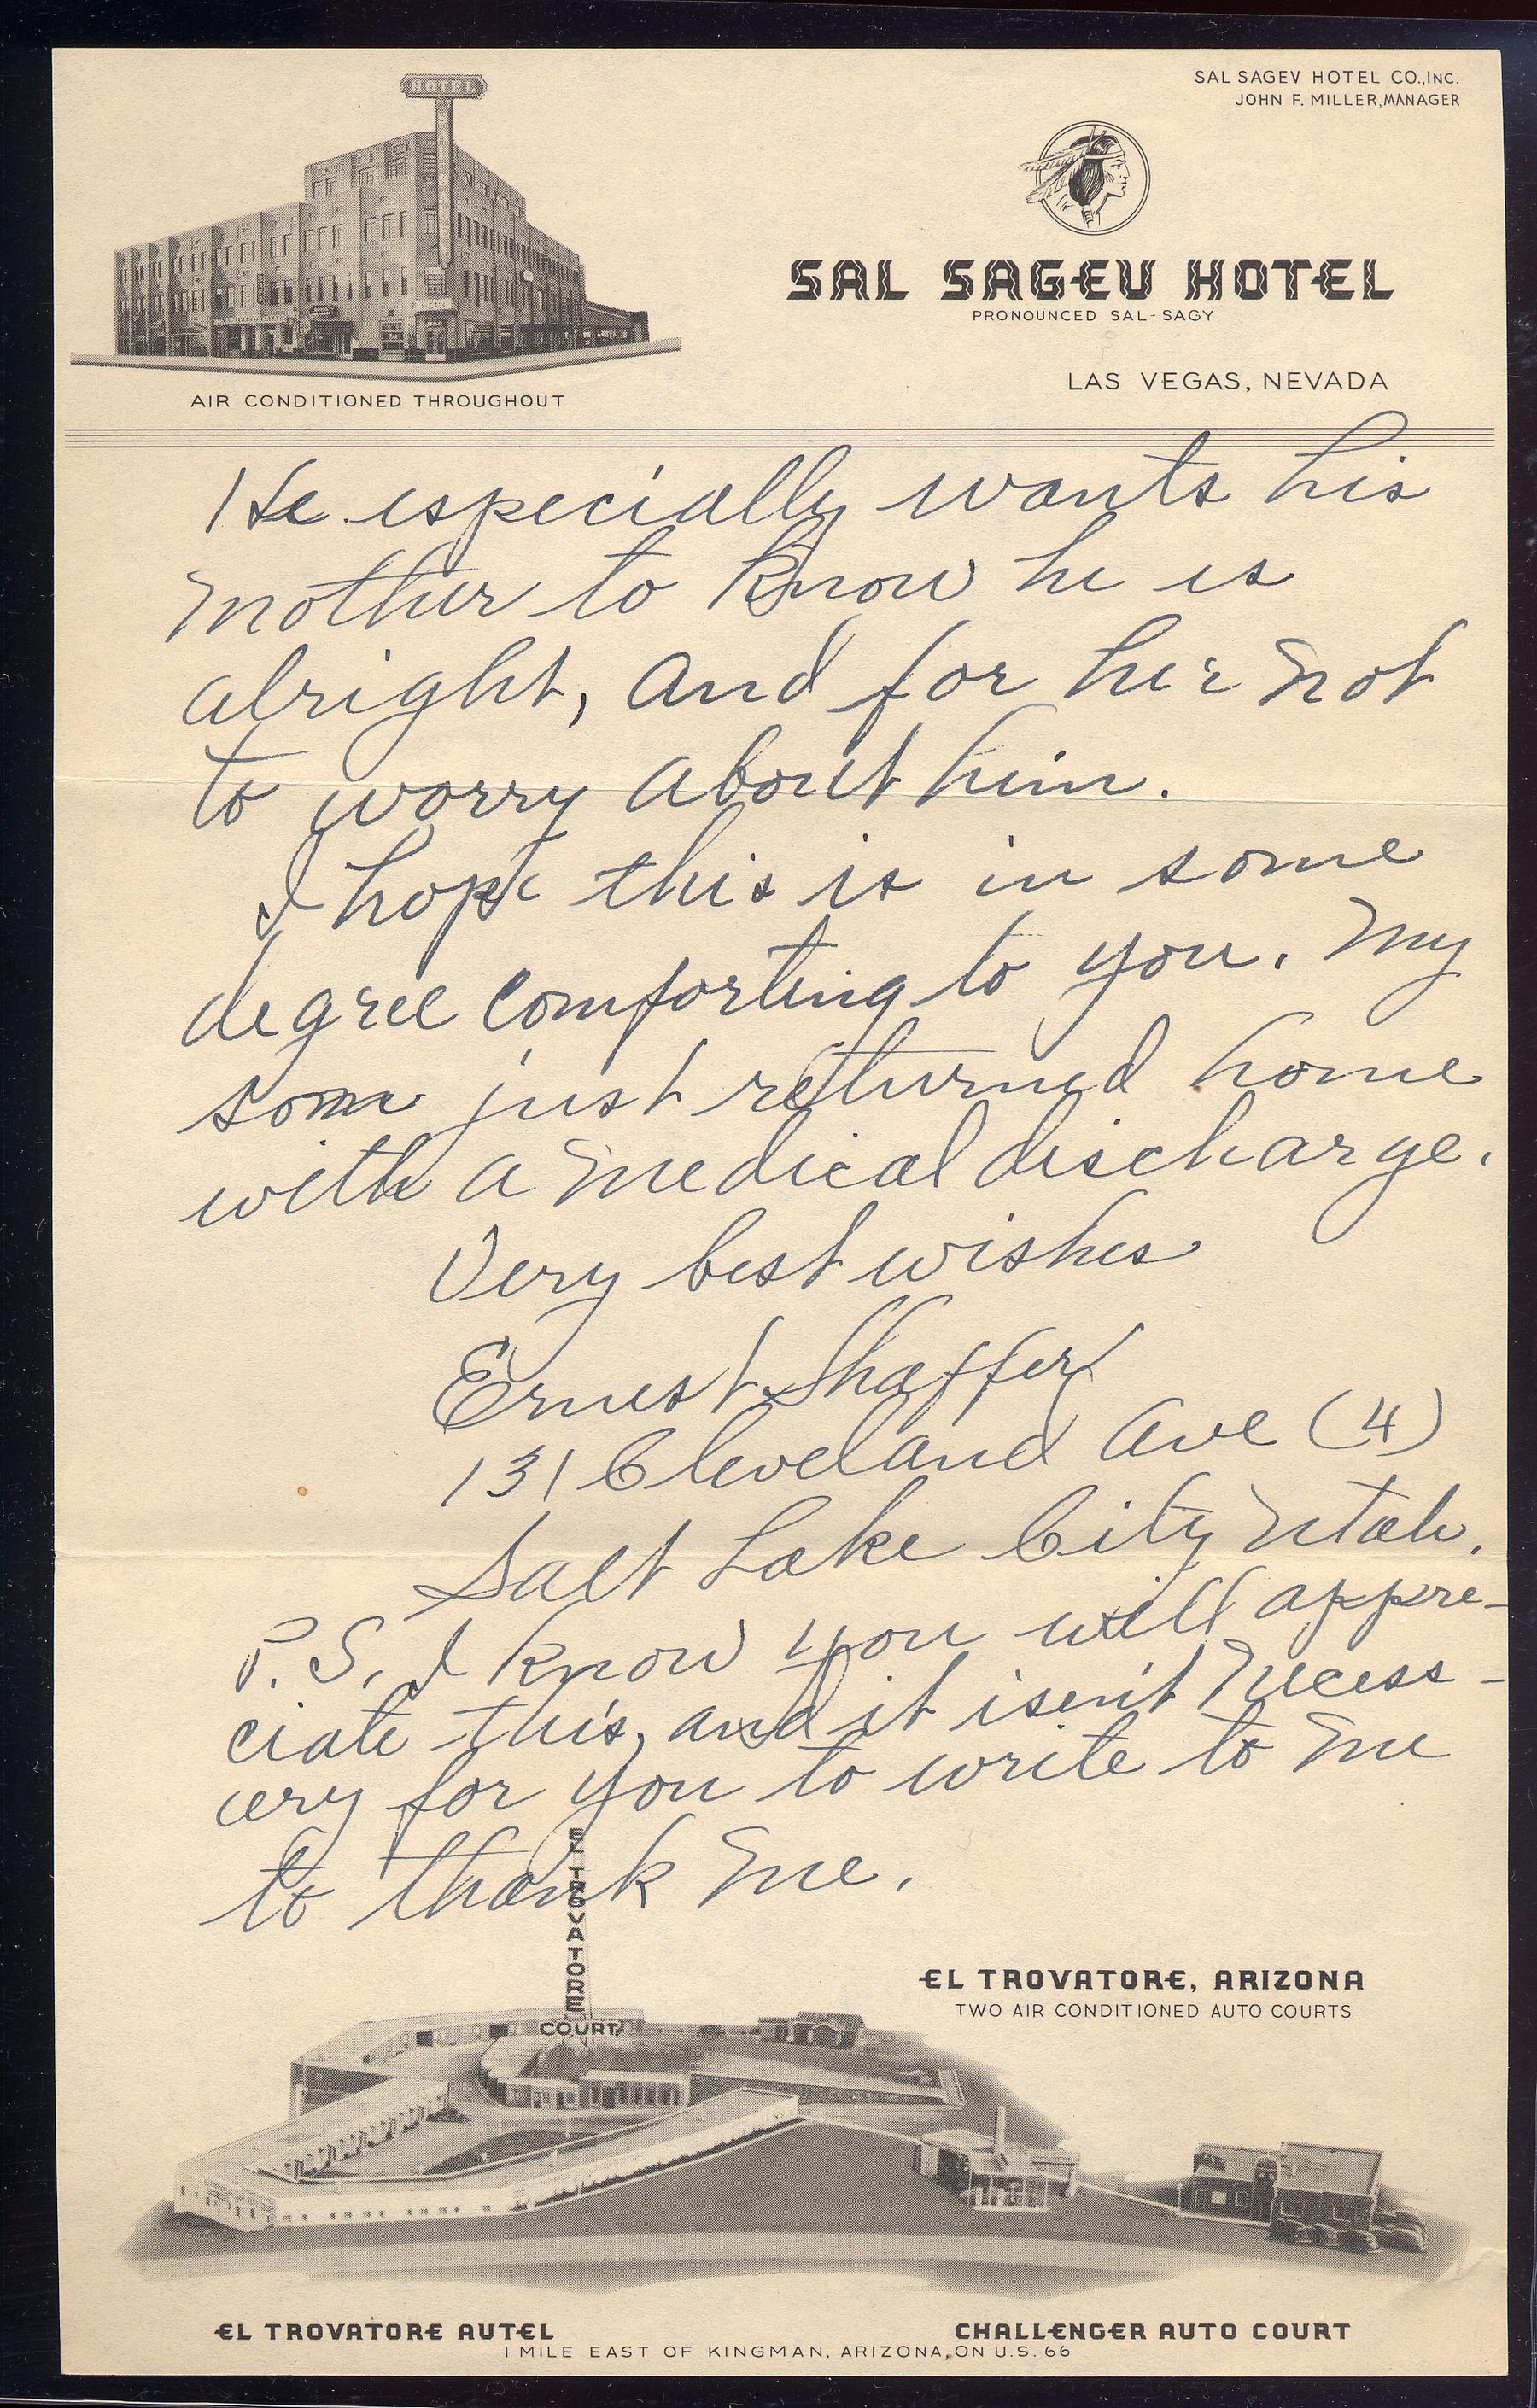 HOTEL
SAL SAGEV HOTEL CO., INC.
JOHN F. MILLER, MANAGER
SAL SAGEV HOTEL
PRONOUNCED SAL-SAGY
LAS VEGAS, NEVADA
AIR CONDITIONED THROUGHOUT
He especially wants his
mother to know he is
alright, and for her not
to worry about him.
I hope this is in some
degree comforting to you. My
son just returned home
with a medical discharge.
Very best wishes
Ernest Shaffer
131 Cleveland Ave (4)
Salt Lake City Utah.
P.S. I know you will appre-
ciate this, and it isen't necess-
ery for you to write to me
to thank me.
EL TROVATORE
COURT
EL TROVATORE, ARIZONA
TWO AIR CONDITIONED AUTO COURTS
EL TROVATORE AUTEL
CHALLENGER AUTO COURT
1 MILE EAST OF KINGMAN, ARIZONA, ON U.S. 66